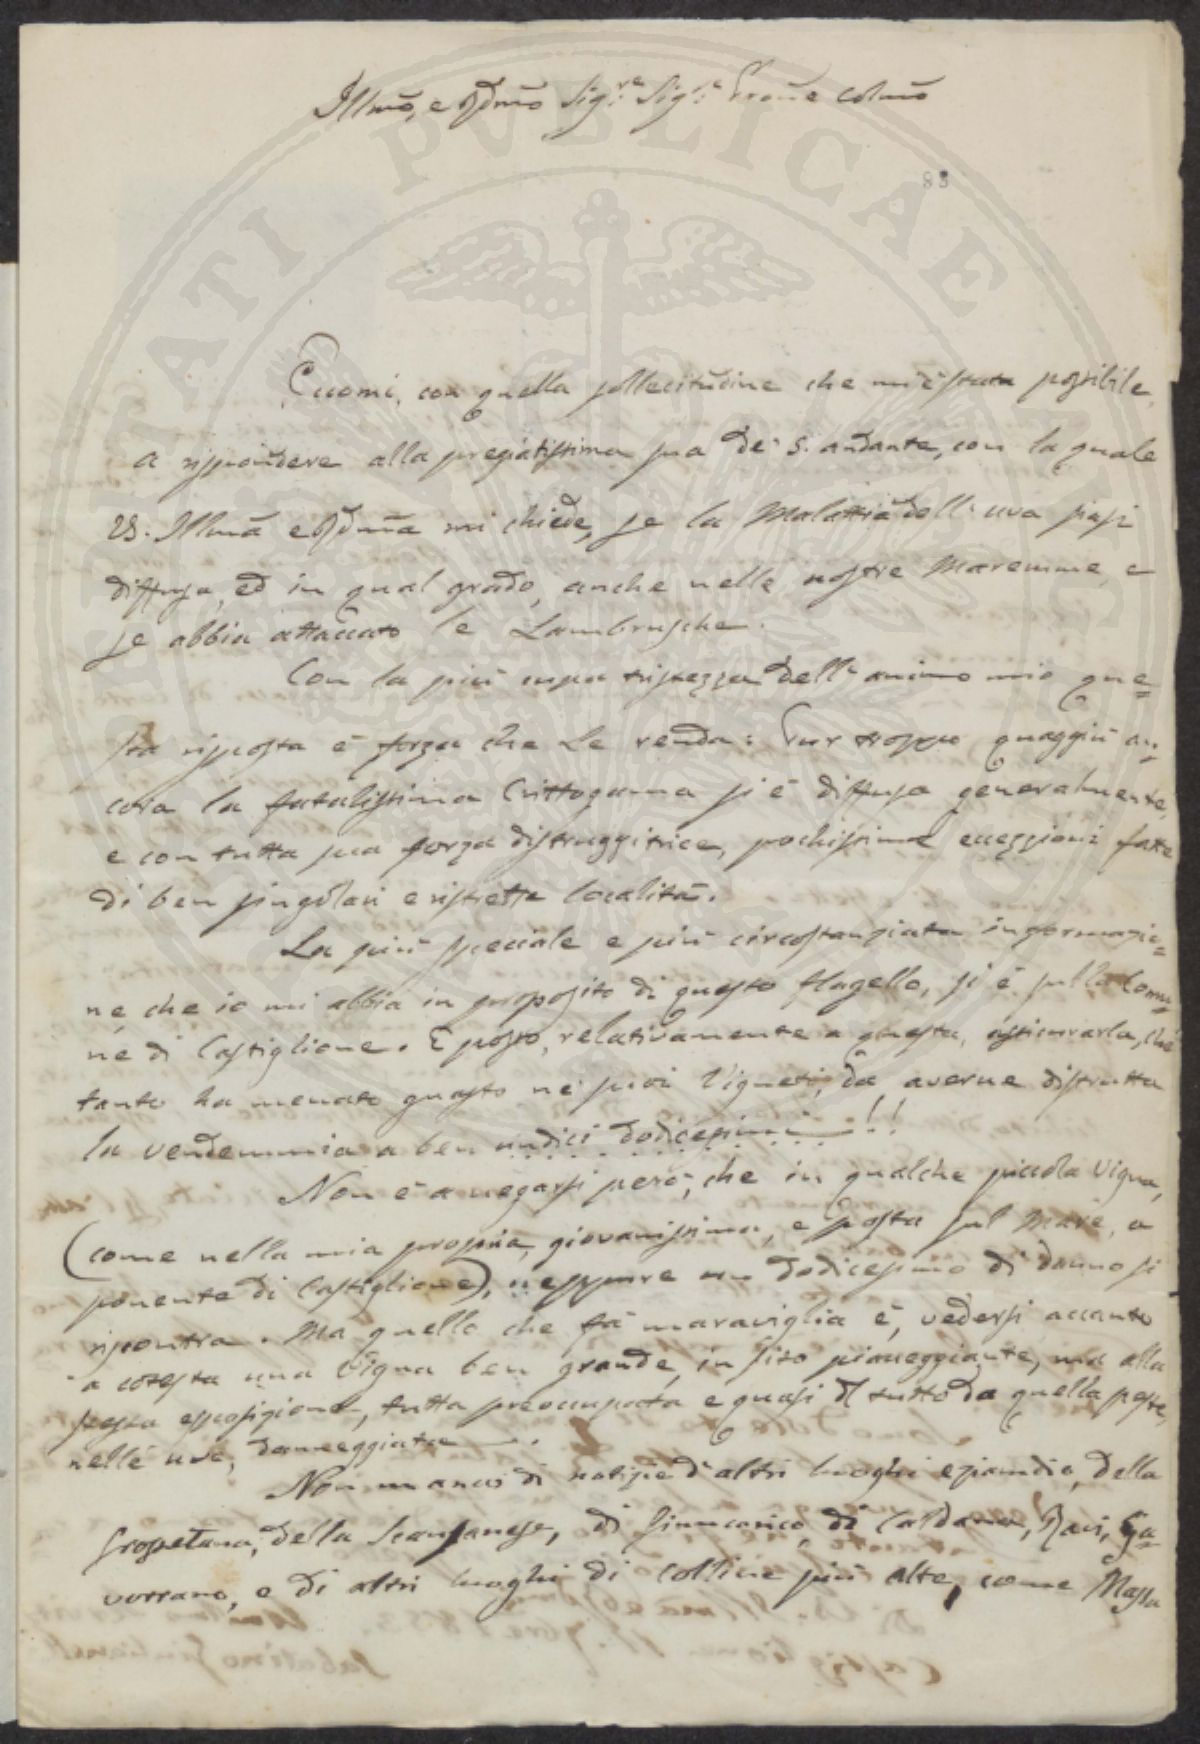 Illmo, e Rdmo Sig:re Sig:e Prone colmo
83
Eccomi, con quella sollecitudine che mi è stata possibile,
a rispondere alla pregiatissima sua de' 5. andante, con la quale
VS. Illma e Rdma mi chiede, se la Malattia dell' uva siasi
diffusa, ed in qual grado, anche nelle nostre Maremme, e
se abbia attaccato le Lambrusche.
Con la più cupa tristezza dell' animo mio que=
sta risposta è forza che Le renda: Pur troppo quaggiù an=
cora la fatalissima Crittogama si è diffusa generalmente,
e con tutta sua forza distruggitrice, pochissime eccezzioni fatte
di ben singolari e ristrette località.
La più speciale e più circostanziata informazio=
ne, che io mi abbia in proposito di questo flagello, si è sulla Comu=
ne di Castiglione. E posso, relativamente a questa, assicurarla, che
tanto ha menato guasto ne' suoi Vigneti, da averne distrutta
la vendemmia a ben undici dodicesimi!!
Non è a negarsi però, che in qualche piccola Vigna,
(come nella mia propria, giovanissima, e posta sul Mare, a
ponente di Castiglione), neppure un dodicesimo di danno si
riscontra. Ma quello che fà maraviglia è, vedersi accanto
a cotesta una Vigna ben grande, in sito pianeggiante, ma alla
stessa esposizione, tutta preoccupata e quasi del tutto da quella peste,
nelle uve, danneggiata.
Non manco di notizie d'altri luoghi eziandio, della
Grossetana, della Scansanese, di Giuncarico, di Caldana, Ravi, Ga=
vorrano, e di altri luoghi di colline più alte, come Massa